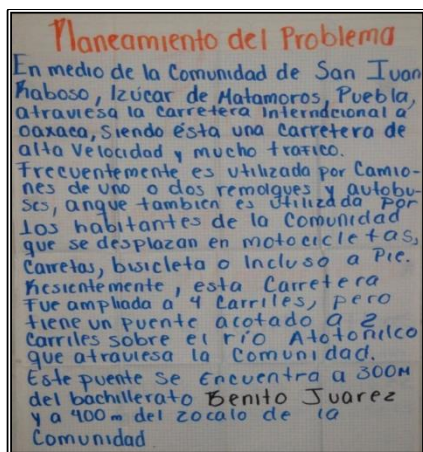 Planeamiento del Problema
En medio de la Comunidad de San Juan
Raboso, Izúcar de Matamoros, Puebla,
atraviesa la carretera Internacional a
Oaxaca, Siendo ésta una Carretera de
alta Velocidad y mucho trafico.
Frecuentemente es utilizada por Camio-
nes de uno o dos remolques y autobu-
ses, anque tambien es utilizada Por
los habitantes de la Comunidad
que se desplazan en motocicletas,
Carretas, bisicleta o Incluso a Pie.
Resientemente, esta Carretera
Fue ampliada a 4 Carriles, pero
tiene un puente acotado a 2
Carriles sobre el río Atotonilco
que atraviesa la Comunidad.
Este puente se Encuentra a 300M
del bachillerato Benito Juarez
y a 400 m del zocalo de la
Comunidad